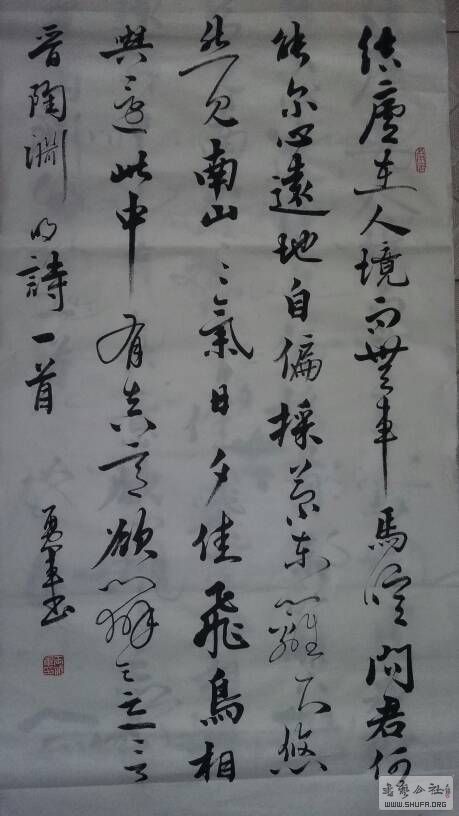 結廬在人境而無車馬喧問君何
能尔心遠地自偏採菊東籬下悠
然見南山〻氣日夕佳飛鳥相
與還此中有真意欲辨已忘言
晋陶淵明詩一首
勇軍书
书艺公社
WWW.SHUFA.ORG